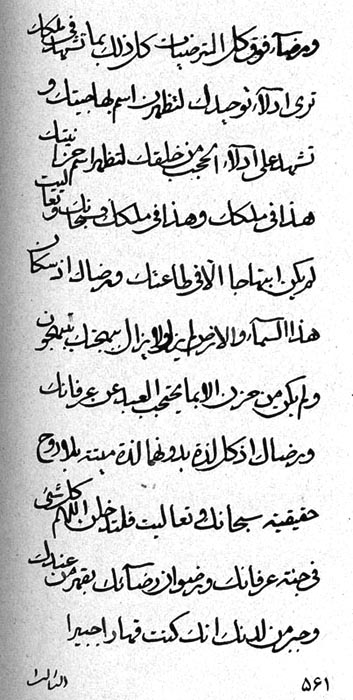 ورضاء فوق كل الترضيات كل ذلك بما تشهد في ملكك
ترى ادلاء توحيدك لتظهرن اسم بهاجيتك و
تشهد على ادلاء الحجب من خلقك لتظهرن اسم حزانيتك
هذا في ملكك وهذا في ملكك فسبحانك وتعاليت
لم يكن ابتهاجا الا في طاعتك ورضاك اذ سكان
هذا السماء والارض لم يزل ولا يزال يبهجنك يبتهجون
ولم يكن من حزن الا بما يحتجب العبد عن عرفانك
ورضاك اذ كل لذة بدونهما لذة ميتة بلا روح
حقيقية سبحانك وتعاليت فلتدخلن اللهم كل شئ
في جنة عرفانك ورضوان رضائك بقهر من عندك
وجبر من لدنك انك كنت قهارا جبيرا
الثالث
۵۶۱